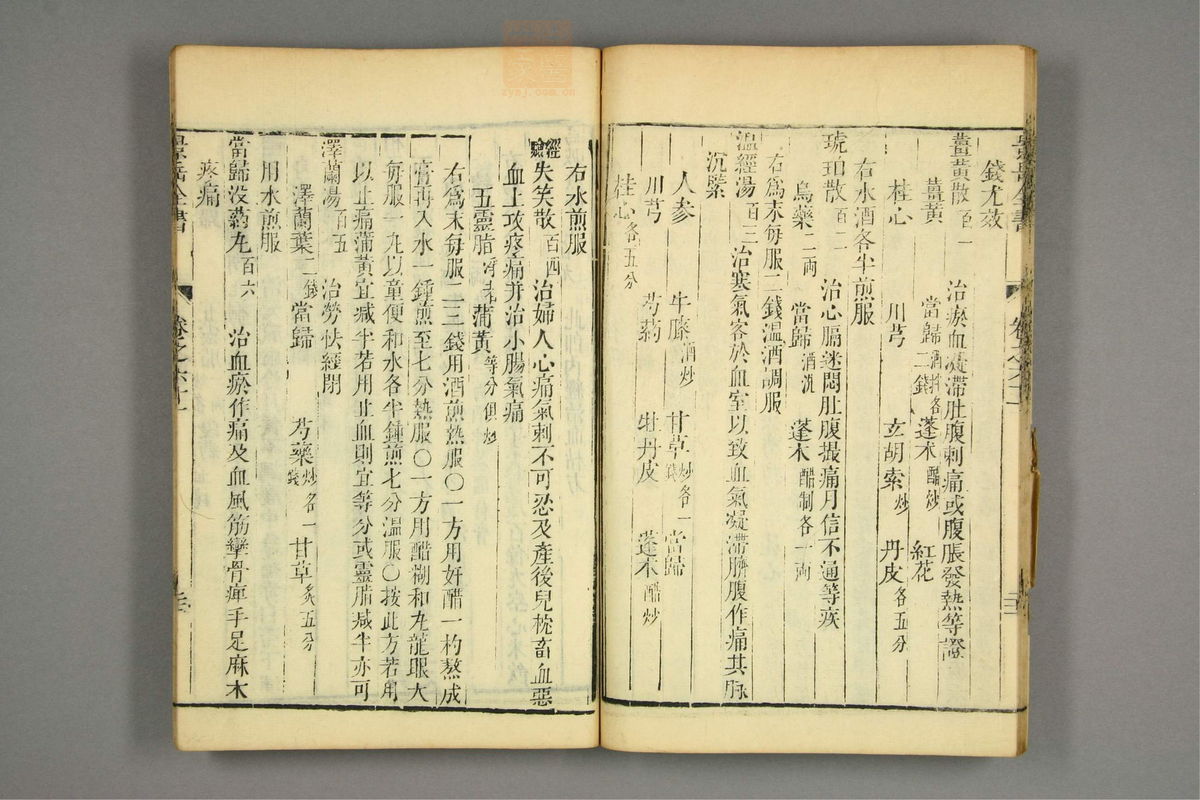 錢尤效
薑黃散百一 治瘀血凝滯肚腹刺痛或腹脹發熱等證
薑黃 當歸酒拌各二錢 蓬朮醋炒 紅花
桂心 川芎 玄胡索炒 丹皮各五分
右水酒各半煎服
琥珀散百二 治心膈迷悶肚腹撮痛月信不通等疾
烏藥二兩 當歸酒洗 蓬朮醋制各一兩
右為末每服二錢溫酒調服
溫經湯百三 治寒氣客於血室以致血氣凝滯臍腹作痛其脉
沉緊
人參 牛膝酒炒 甘草炒各一錢 當歸
川芎 芍藥 牡丹皮 蓬朮醋炒
桂心各五分
景岳全書 卷之六十一
右水煎服
失笑散百四 治婦人心痛氣刺不可忍及產後兒枕畜血惡
血上攻疼痛并治小腸氣痛
五靈脂淨者 蒲黃等分俱炒
右為末每服二三錢用酒煎熱服〇一方用好醋一杓熬成
膏再入水一鍾煎至七分熱服〇一方用醋糊和丸龍眼大
每服一丸以童便和水各半鍾煎七分溫服〇按此方若用
以止痛蒲黃宜減半若用止血則宜等分或靈脂減半亦可
澤蘭湯百五 治勞怯經閉
澤蘭葉二錢 當歸 芍藥炒各一錢 甘草炙五分
用水煎服
當歸没藥丸百六 治血瘀作痛及血風筋攣骨痺手足麻木
疼痛
景岳全書 卷之六十一